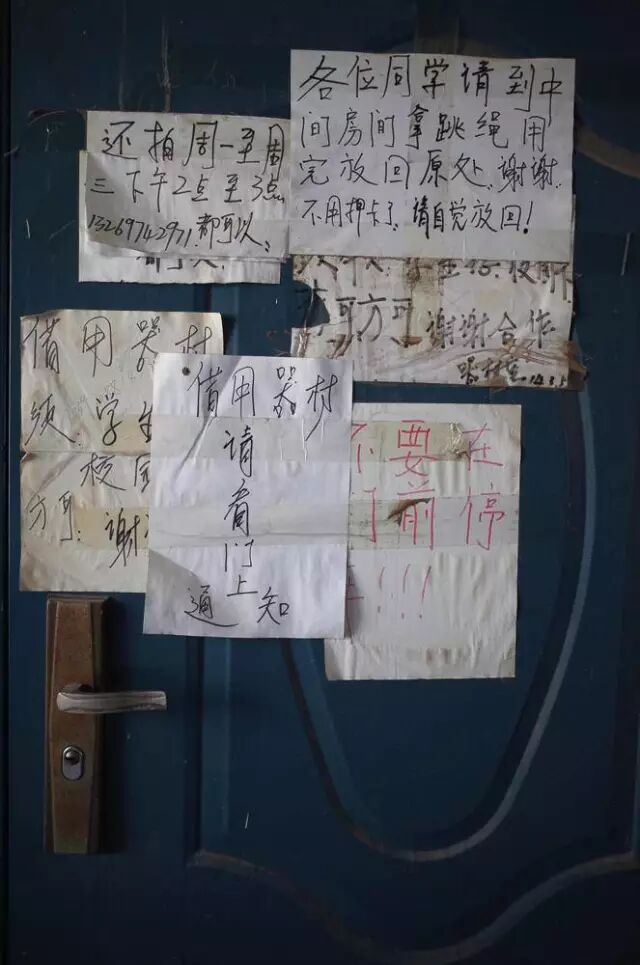 还拍周一至周
三下午2点至3点
13269742971.都可以.
各位同学请到中
间房间拿跳绳用
完放回原处.谢谢.
不用押卡了.请自觉放回!
方可 谢谢合作
借用器材
须:学生
校园
方可:谢
借用器材
请
看
门
上
通知
不要在
门前停
车!!!